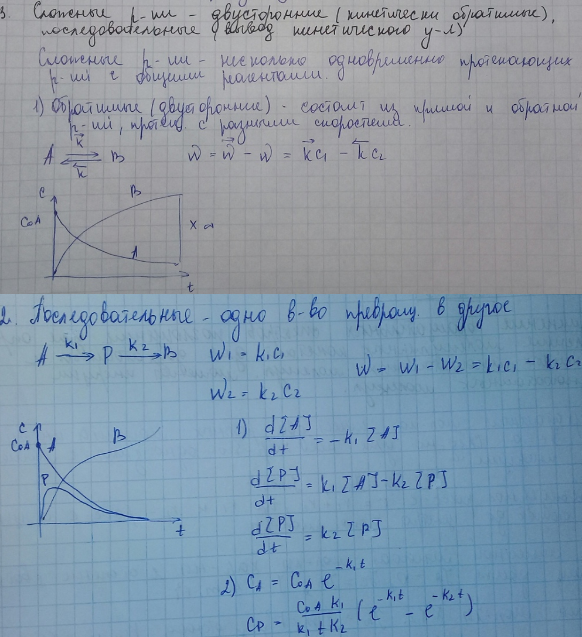 3. Сложные р-ии - двусторонние (кинетически обратимые),
последовательные (вывод кинетического у-я)
Сложные р-ии - несколько одновременно протекающих
р-ий с общими реагентами.
1) Обратимые (двусторонние) - состоит из прямой и обратной
р-ий, протек. с разными скоростями.
A ⇄ B (k→, k←) w = w→ - w← = k→c₁ - k←c₂
C
C₀A
B
A
x ∞
t
2. Последовательные - одно в-во превращ. в другое
A —k₁→ P —k₂→ B W₁ = k₁c₁ W = W₁ - W₂ = k₁c₁ - k₂c₂
W₂ = k₂c₂
C
C₀A
A
B
P
t
1) d[A]/dt = -k₁[A]
d[P]/dt = k₁[A] - k₂[P]
d[P]/dt = k₂[P]
2) C_A = C₀A e^(-k₁t)
C_P = C₀A k₁/(k₁ + k₂) (e^(-k₁t) - e^(-k₂t))